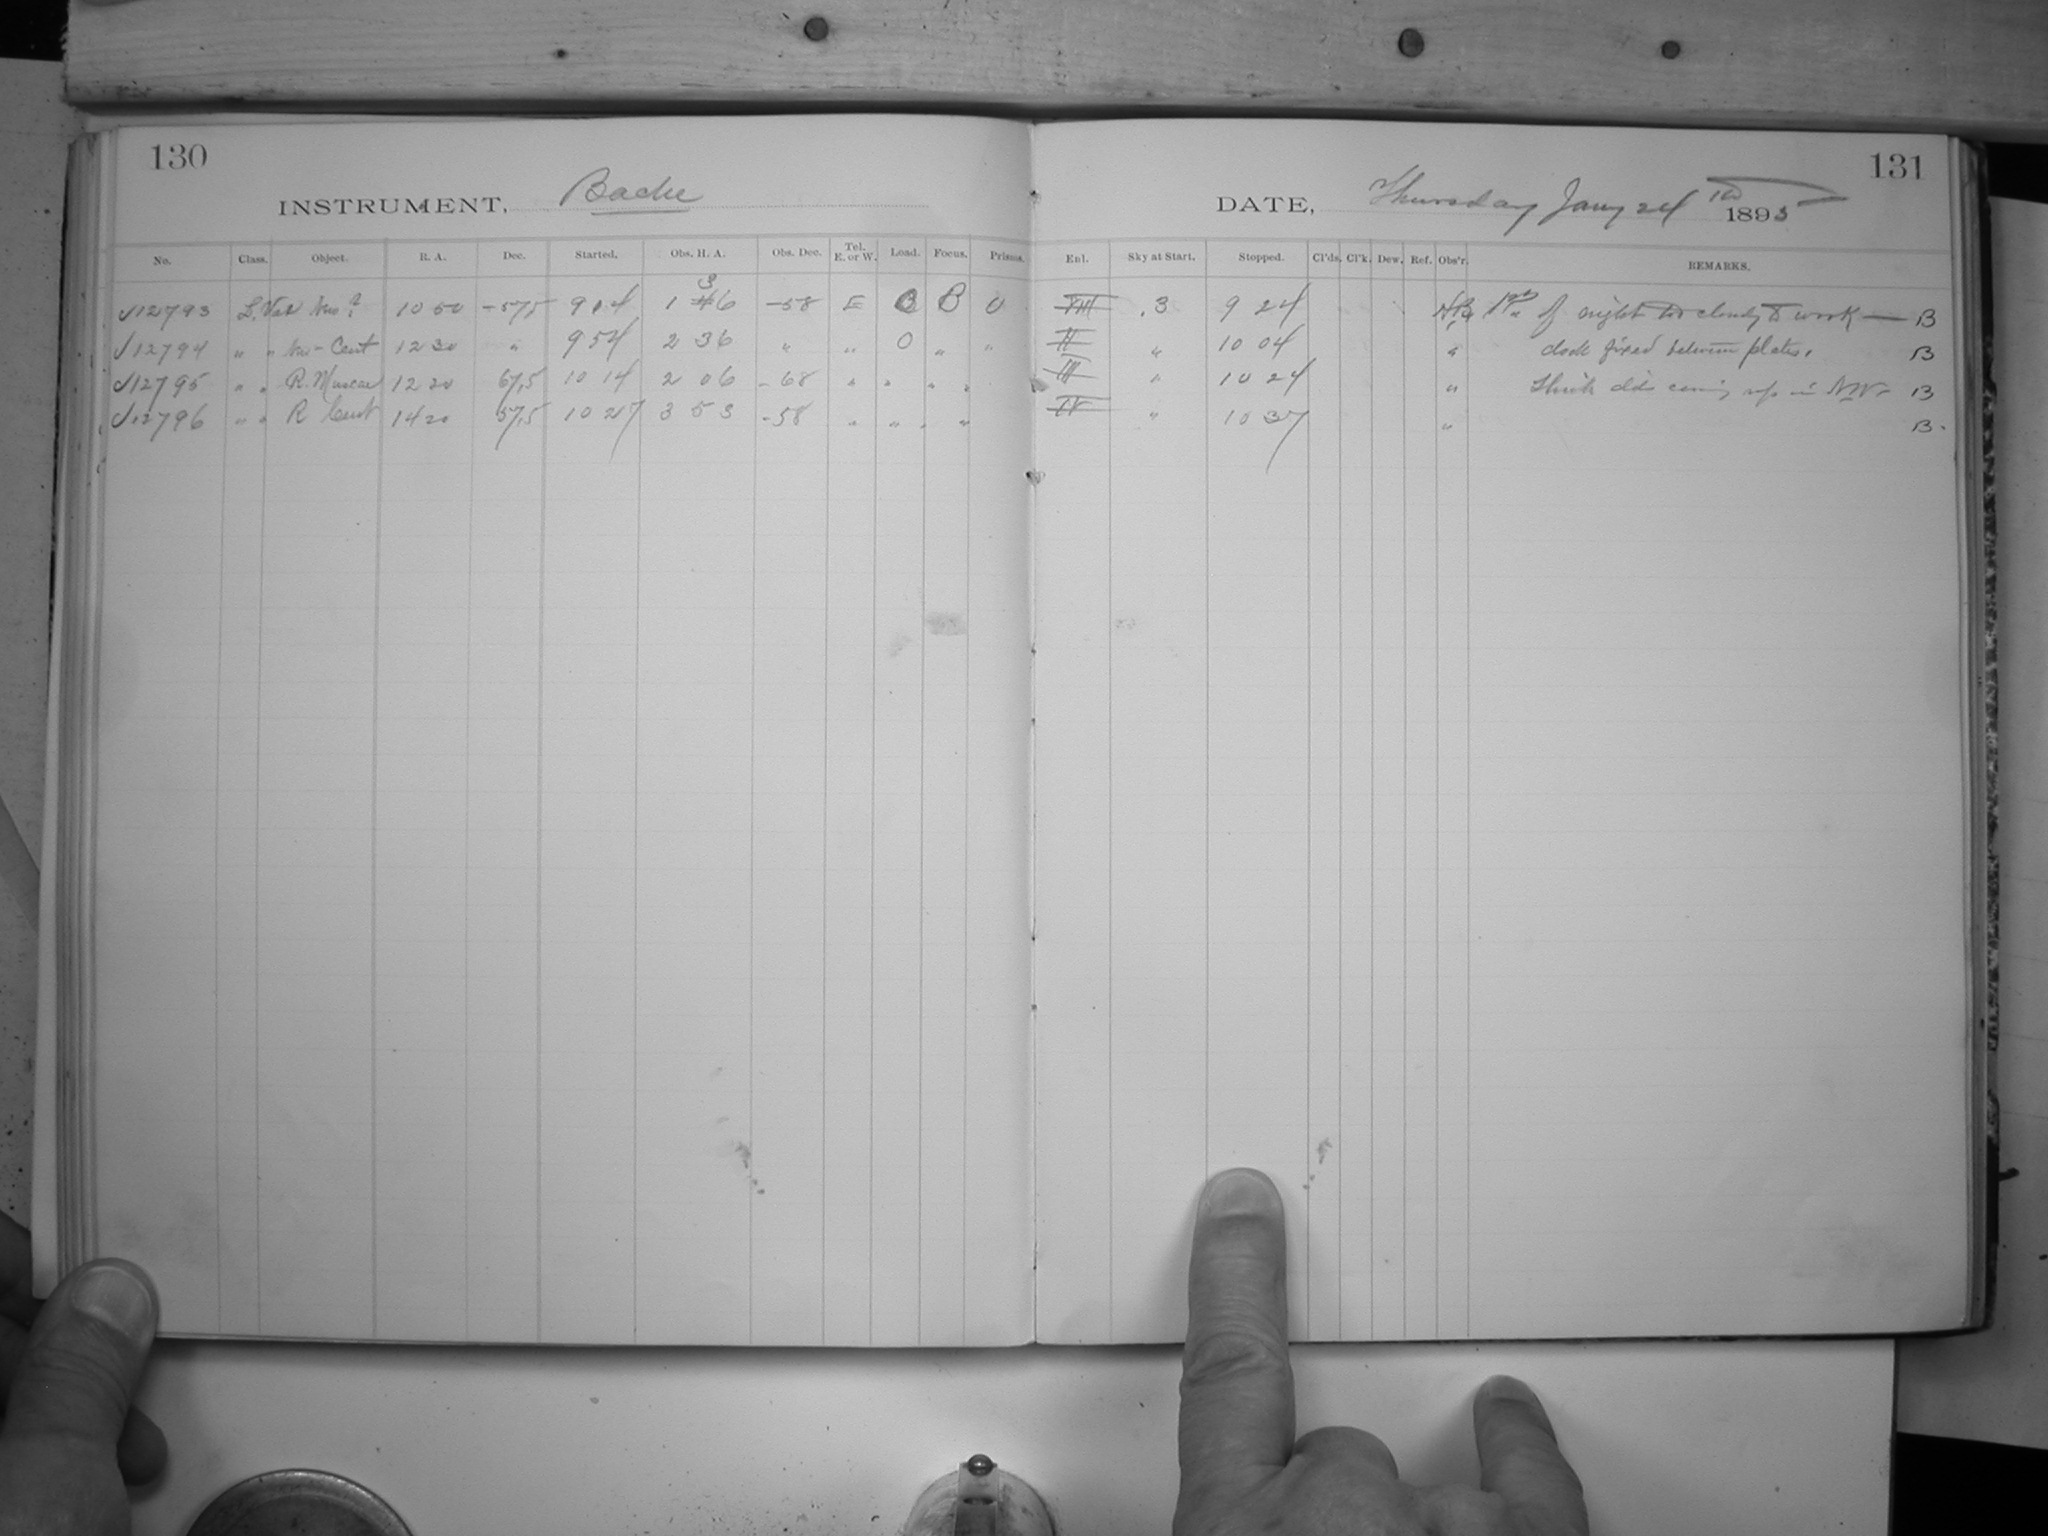 130
131
INSTRUMENT, Bache
DATE, Thursday Jany 24 1895
No. Class. Object. R. A. Dec. Started. Obs. H. A. Obs. Dec. Tel. E. or W. Load. Focus. Prisms. Enl. Sky at Start. Stopped. Cl'ds. Cl'k. Dew. Ref. Obs'r. REMARKS.
3
√12793 L. Var 10 50 -57,5 9 14 1 46 -58 E B B 0 VIII .3 9 24 of night too cloudy to work — B
√12794 " " - Cent 12 30 " 9 54 2 36 " " 0 " " II " 10 04 " clock fixed between plates. B
√12795 " " R. Muscae 12 20 67,5 10 14 2 06 -68 " " " " III " 10 24 " Think clds coming up in NW - B
√12796 " " R Cent 14 20 57,5 10 27 3 53 -58 " " " " IV " 10 37 " B.